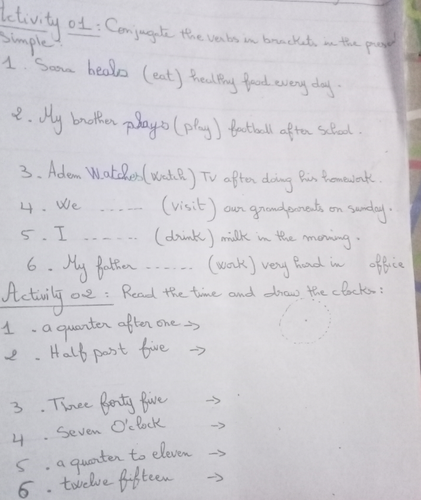 Activity 01: Conjugate the verbs in brackets in the present
simple.
1. Sara heals (eat) healthy food every day.
2. My brother plays (play) football after school.
3. Adem Watches (watch) TV after doing his homework.
4. We ...... (visit) our grandparents on sunday.
5. I ...... (drink) milk in the morning.
6. My father ...... (work) very hard in office
Activity 02: Read the time and draw the clocks:
1. a quarter after one →
2. Half past five →
3. Three forty five →
4. Seven O'clock →
5. a quarter to eleven →
6. twelve fifteen →